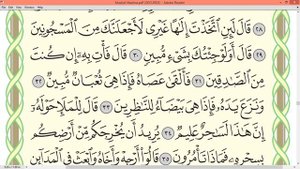 Mushaf Madina.pdf (SECURED) - Adobe Reader
٢٨ قَالَ لَئِنِ ٱتَّخَذْتَ إِلَٰهًا غَيْرِى لَأَجْعَلَنَّكَ مِنَ ٱلْمَسْجُونِينَ
٢٩ قَالَ أَوَلَوْ جِئْتُكَ بِشَىْءٍ مُّبِينٍ ٣٠ قَالَ فَأْتِ بِهِۦٓ إِن كُنتَ
مِنَ ٱلصَّٰدِقِينَ ٣١ فَأَلْقَىٰ عَصَاهُ فَإِذَا هِىَ ثُعْبَانٌ مُّبِينٌ ٣٢
وَنَزَعَ يَدَهُۥ فَإِذَا هِىَ بَيْضَآءُ لِلنَّٰظِرِينَ ٣٣ قَالَ لِلْمَلَإِ حَوْلَهُۥٓ
إِنَّ هَٰذَا لَسَٰحِرٌ عَلِيمٌ ٣٤ يُرِيدُ أَن يُخْرِجَكُم مِّنْ أَرْضِكُم
بِسِحْرِهِۦ فَمَاذَا تَأْمُرُونَ ٣٥ قَالُوٓا۟ أَرْجِهْ وَأَخَاهُ وَٱبْعَثْ فِى ٱلْمَدَآئِنِ